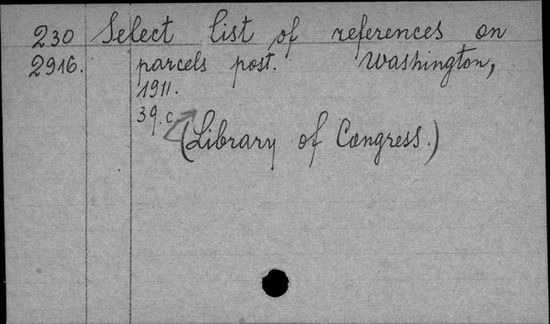 230 Select list of references on
2916. parcels post. Washington,
1911.
39.c.
(Library of Congress.)